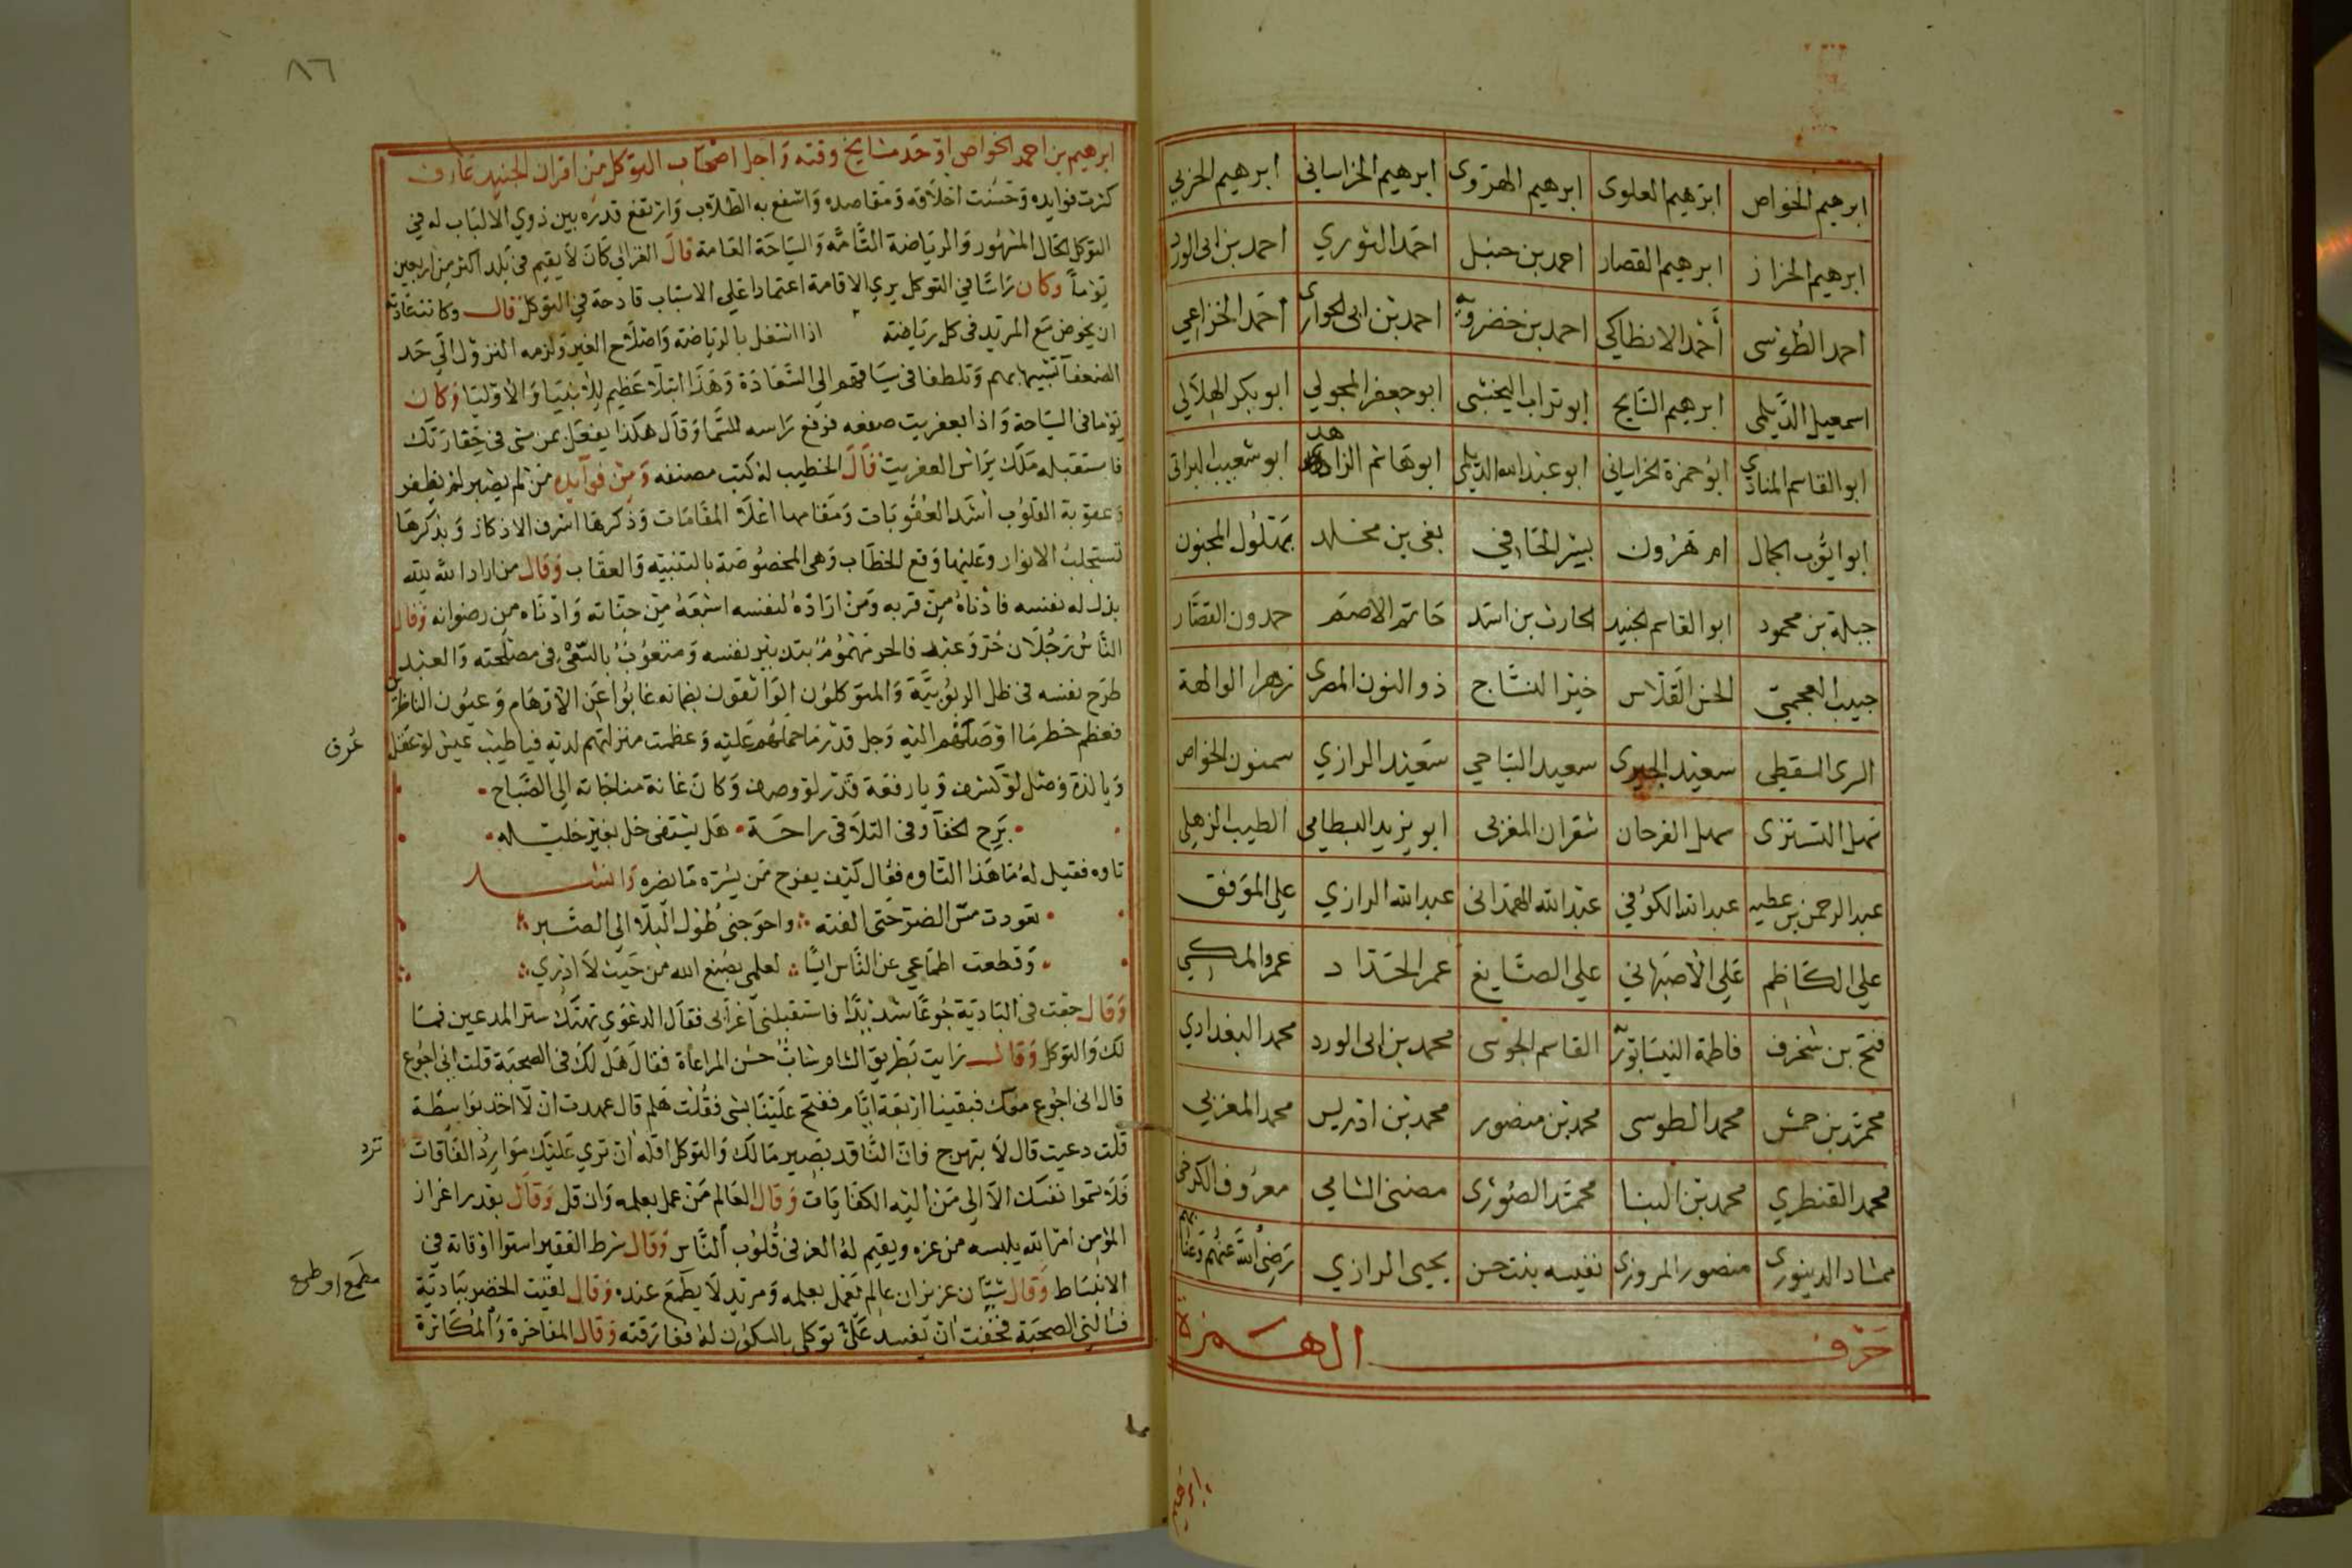 ابرهيم الخواص ابرهيم العلوى ابرهيم الهروى ابرهيم الخراساني ابرهيم الحربي
ابرهيم الخراز ابرهيم القصار احمد بن حنبل احمد النوري احمد بن ابى الورد
احمد الطوسى أحمد الانطاكي احمد بن خضرويه احمد بن ابى الحوارى احمد الخزاعي
اسمعيل الديلمى ابرهيم السايح ابو تراب النخشبى ابو جعفر المجولي ابو بكر الهلالي
ابو القاسم المنادي ابو حمزة الخراساني ابو عبد الله الديلمى ابو هاشم الزاهد ابو شعيب البراثى
ابو ايوب الجمال ام هرون بشر الحافي بقى بن مخلد بهلول المجنون
جبلة بن محمود ابو القاسم الجنيد الحارث بن اسد حاتم الاصم حمدون القصار
حبيب العجمى الحسن القلاس خير النساج ذو النون المصرى زهرا الوالهة
السرى السقطى سعيد الحيرى سعيد النباجي سعيد الرازي سمنون الخواص
سهل التسترى سهل الفرحان شقران المغربى ابو يزيد البسطامى الطيب الزهلي
عبد الرحمن بن عطيه عبد الله الكوفي عبد الله الهمداني عبد الله الرازي علي الموفق
علي الكاظم علي الاصبهاني علي الصايغ عمر الحداد عمرو المكي
فتح بن شخرف فاطمة النيسابورية القاسم الجوعى محمد بن ابى الورد محمد البغدادي
محمد بن حمش محمد الطوسى محمد بن منصور محمد بن ادريس محمد المغربي
محمد القنطري محمد بن البنا محمد الصورى مضىى الشامي معروف الكرخى
ممشاد الدينورى منصور المروزى نفيسه بنت حسن يحيى الرازي رضى الله عنهم وعنا بهم
حرف الهمزة
ابرهيم
٨٦
ابرهيم بن احمد الخواص اوحد مشايخ وقته واجل اصحاب التوكل من اقران الجنيد عارف
كثرت فوايده وحسنت اخلاقه ومقاصده وانتفع به الطلاب وارتفع قدره بين ذوي الالباب له في
التوكل الحال المشهور والرياضة التامة والسياحة العامة قال الغزالي كان لا يقيم فى بلد اكثر من اربعين
يوما وكان راسا في التوكل يري الاقامة اعتمادا على الاسباب قادحة في التوكل قال وكانت عادته
ان يخوض مع المريد فى كل رياضته اذا اشتغل بالرياضة واصلاح الغير ولزمه النزول الي حد
الضعفآ تشبيها بهم وتلطفا فى سياقهم الي السعادة وهذا ابتلآ عظيم للانبيا والاوليا وكان
يوما فى السياحة واذا بعفريت صفعه فرفع راسه للسما وقال هكذا يفعل بمن مشى فى خفارتك
فاستقبله ملك براس العفريت قال الخطيب له كتب مصنفه ومن فوآيده من لم يصبر لم يظفر
وعقوبة القلوب اشد العقوبات ومقامها اعلا المقامات وذكرها اشرف الاذكار وبذكرها
تستجلب الانوار وعليها وقع الخطاب وهى المخصوصة بالتنبيه والعقاب وقال من اراد الله لله
بذل له نفسه فادناه من قربه ومن اراده لنفسه اشبعه من جناته وادناه من رضوانه وقال
الناس رجلان حر وعبد فالحر مهموم بتدبير نفسه ومتعوب بالسعى فى مصلحته والعبد
طرح نفسه فى ظل الربوبية والمتوكلون الواثقون بضمانه غابوا عن الاوهام وعيون الناظرين
فعظم خطر ما اوصلهم اليه وجل قدر ما حملهم عليه وعظمت منزلتهم لديه فيا طيب عيش لو عقل
عرف
ويا لذة وصل لو كشف ويا رفعة قدر لو وصف وكان غاية مناجاته الي الصباح
برح الخفآ وفى التلاقى راحة هل يشتفى خل بغير خليله
تاوه فقيل له ما هذا التاوه فقال كيف يفرح من يسره ما يضره وانشد
تعودت مس الضر حتى الفته واحوجني طول البلا الي الصبر
وقطعت اطماعي عن الناس ايسا لعلمي بصنع الله من حيث لا ادري
وقال جعت فى البادية جوعا شديدا فاستقبلنى اعرابى فقال الدعوى تهتك ستر المدعين فما
لك والتوكل وقال رايت بطريق الشام شاب حسن المراعاة فقال هل لك فى الصحبة قلت اني اجوع
قال انى اجوع معك فبقينا اربعة ايام ففتح علينا بشى فقلت هلم قال عهدت ان لا اخذ بواسطة
قلت دعيت قال لا تبهرج فان الناقد بصير مالك والتوكل اقله ان تري عليك موارد الفاقات
ترد
فلا تسموا نفسك الا الي من اليه الكفايات وقال العالم من عمل بعلمه وان قل وقال بقدر اعزاز
المؤمن امر الله يلبسه من عزه ويقيم له العز فى قلوب الناس وقال شرط الفقير استوا اوقاته في
الانبساط وقال شيان عزيزان عالم يعمل بعلمه ومريد لا يطمع عنده وقال لقيت الخضر ببادية
مطمع او طمع
فسالنى الصحبة فخفت ان تفسد على توكلى بالسكون له ففارقته وقال المفاخرة والمكاثرة